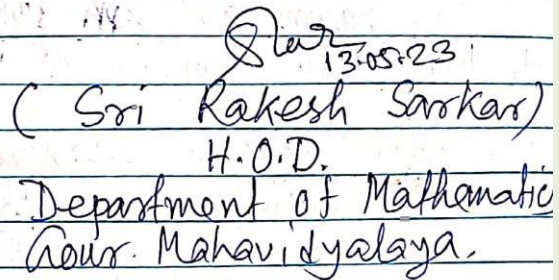 13.05.23
( Sri Rakesh Sarkar)
H.O.D.
Department of Mathematic
Gour Mahavidyalaya.